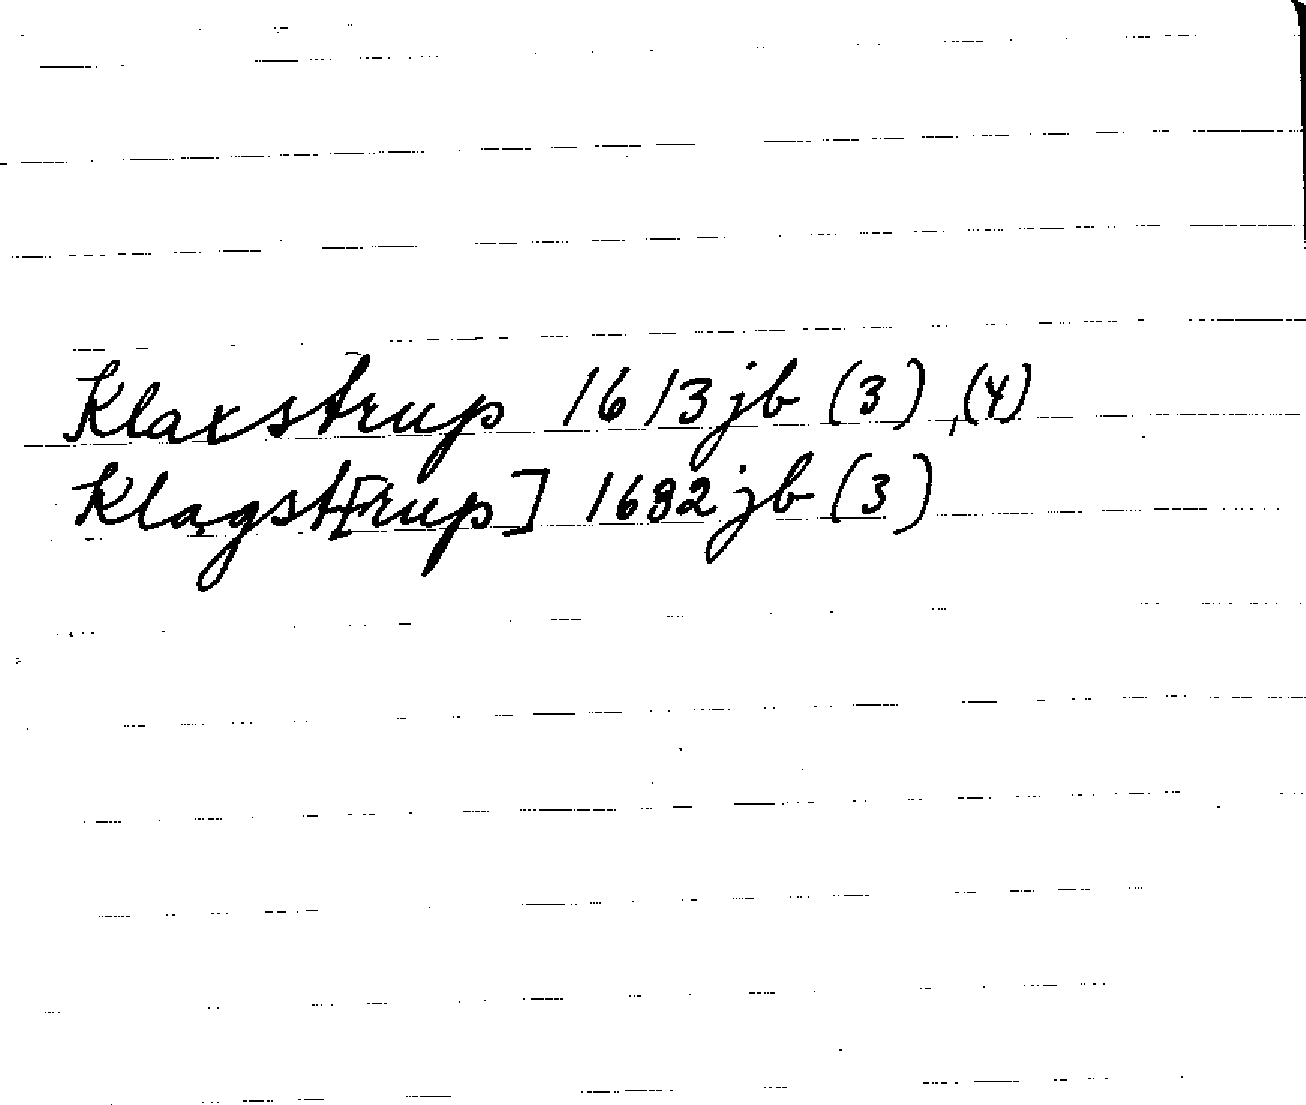 Klaxstrup 1613 jb (3), (4)
Klagst[rup] 1682 jb (3)